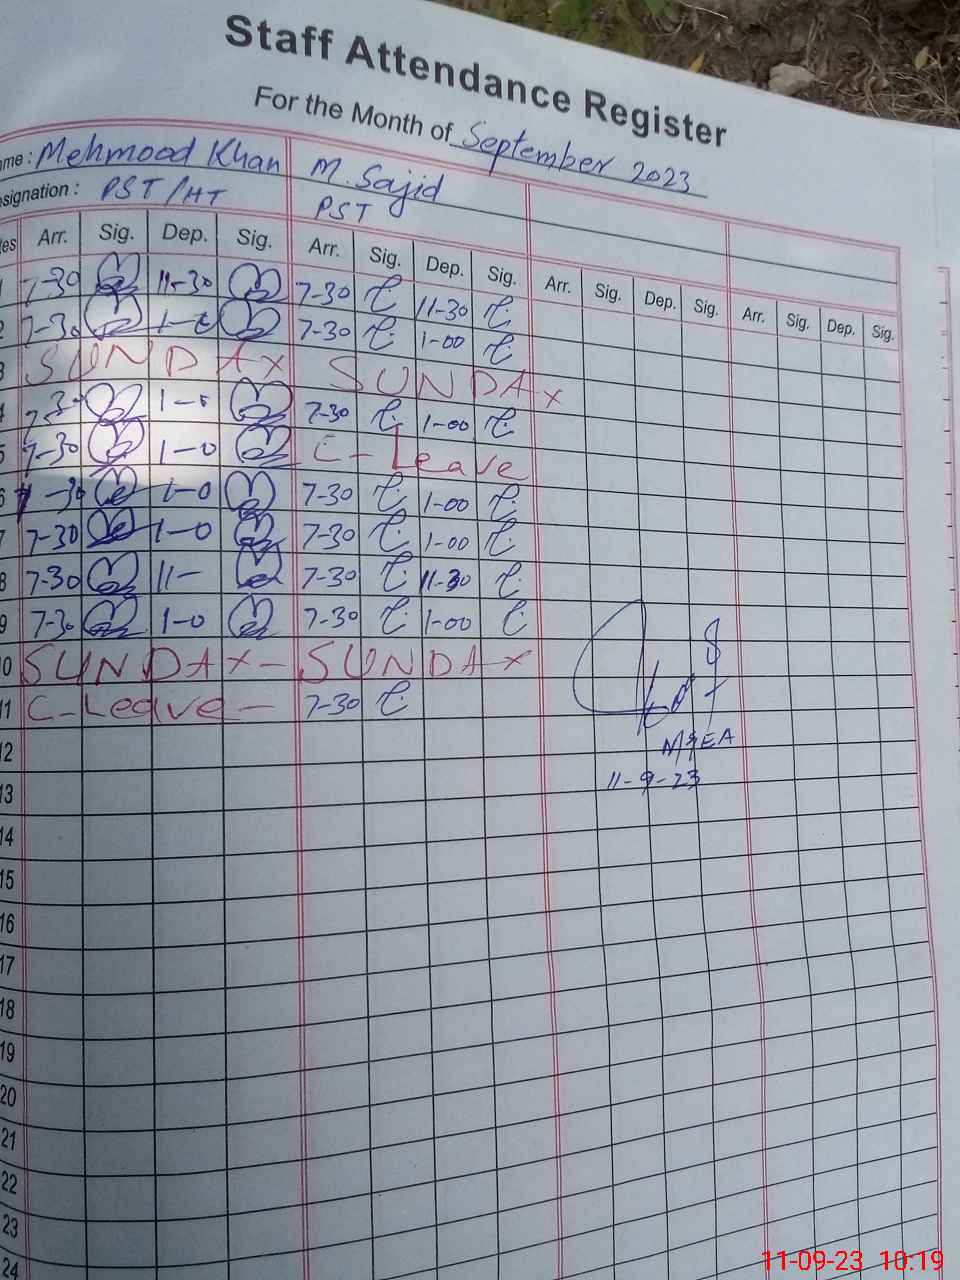 Staff Attendance Register
For the Month of September 2023
me: Mehmood Khan M. Sajid
signation: PST/HT PST
tes Arr. Sig. Dep. Sig. Arr. Sig. Dep. Sig. Arr. Sig. Dep. Sig. Arr. Sig. Dep. Sig.
1 7-30 11-30 7-30 11-30
2 7-30 1-0 7-30 1-00
3 SUNDAY SUNDAY
4 7-30 1-0 7-30 1-00
5 7-30 1-0 C-Leave
6 7-30 1-0 7-30 1-00
7 7-30 1-0 7-30 1-00
8 7-30 11- 7-30 11-30
9 7-30 1-0 7-30 1-00
10 SUNDAY - SUNDAY
11 C-Leave - 7-30
12
13 11-9-23
14
15
16
17
18
19
20
21
22
23
24
11-09-23 10:19